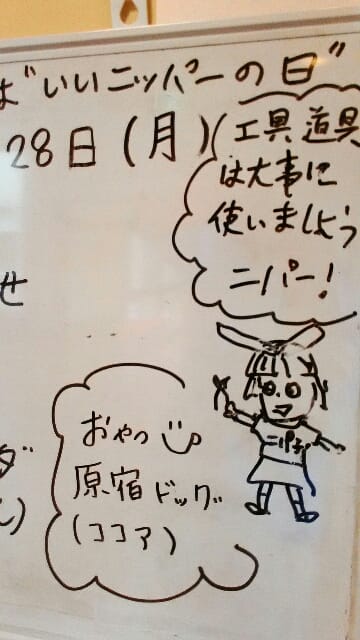 は"いいニッパーの日"
28日(月)
工具道具
は大事に
使いましょう
ニパー!
せ
ニパ子
おやつ
原宿ドッグ
(ココア)